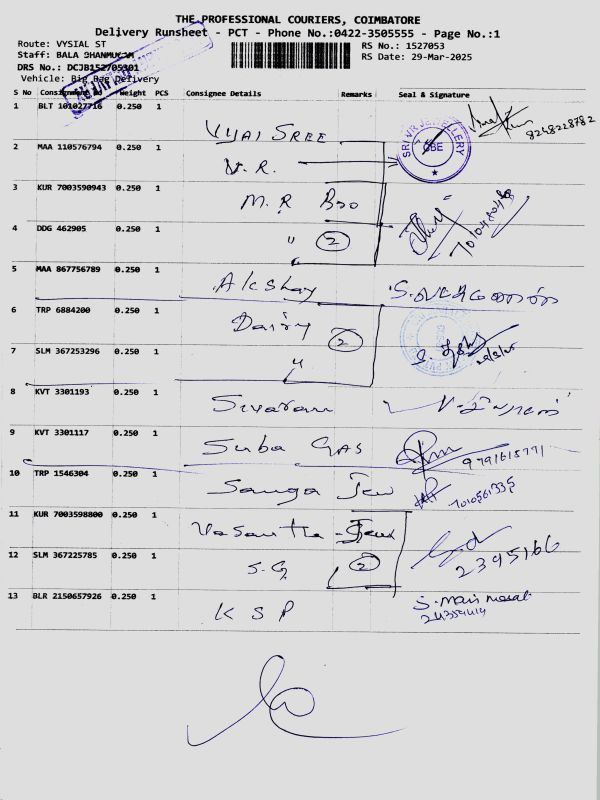 THE PROFESSIONAL COURIERS, COIMBATORE
Delivery Runsheet - PCT - Phone No.:0422-3505555 - Page No.:1
Route: VYSIAL ST
RS No.: 1527053
Staff: BALA SHANMUGAM
RS Date: 29-Mar-2025
DRS No.: DCJB152705301
Vehicle: Big Bag Delivery
S No Consignment No Weight PCS Consignee Details Remarks Seal & Signature
1 BLT 101027716 0.250 1
VIJAI SREE
8248228782
2 MAA 110576794 0.250 1
V.R.
SRI VR JEWELLERY
CBE
3 KUR 7003590943 0.250 1
M.R Bro
4 DDG 462905 0.250 1
" 2
5 MAA 867756789 0.250 1
Akshay
6 TRP 6884200 0.250 1
Dairy
2
7 SLM 367253296 0.250 1
"
8 KVT 3301193 0.250 1
Sivaram
9 KVT 3301117 0.250 1
Suba GAS
9791615771
10 TRP 1546304 0.250 1
Sanga Jew
7010561335
11 KUR 7003598800 0.250 1
Vasantha - Jewx
12 SLM 367225785 0.250 1
S.G 2
2395166
13 BLR 2150657926 0.250 1
K S P